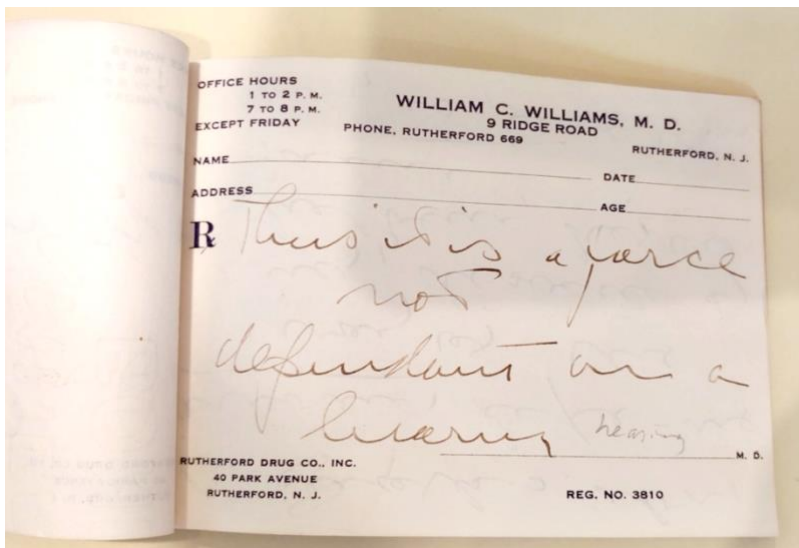 OFFICE HOURS
1 TO 2 P. M.
7 TO 8 P. M.
EXCEPT FRIDAY
WILLIAM C. WILLIAMS, M. D.
9 RIDGE ROAD
PHONE, RUTHERFORD 669
RUTHERFORD, N. J.
NAME
DATE
ADDRESS
AGE
℞ Thus it is a force
not
dependant on a
hearing hearing
M. D.
RUTHERFORD DRUG CO., INC.
40 PARK AVENUE
RUTHERFORD, N. J.
REG. NO. 3810